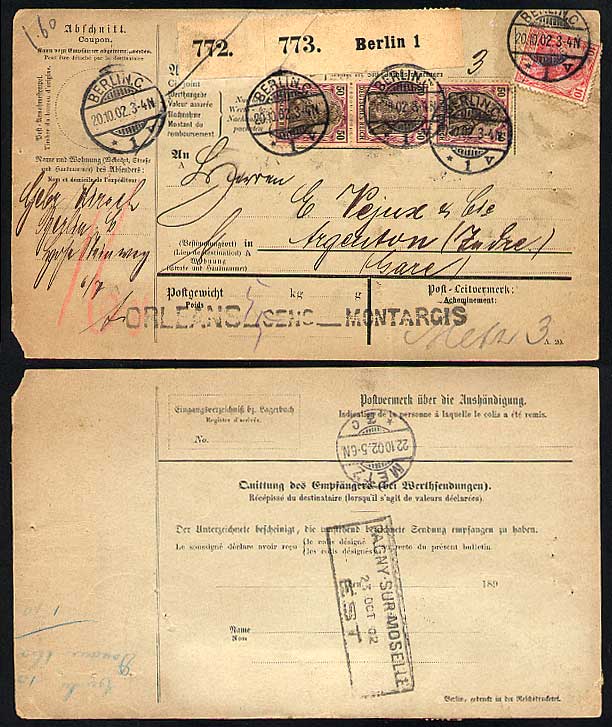 1.60
Abschnitt.
Coupon.
Kann vom Empfänger abgetrennt werden.
Peut être détaché par le destinataire
Post-Ausgabestempel.
Timbre du bureau d'origine.
BERLIN.C.
20.10.02.3-4N
* 1 A
Name und Wohnung
Nom et domicile de l'expéditeur
des Absenders:
Berlin C
772. 773. Berlin 1
3
Ci-joint
Werthangabe
Valeur assurée
Nachnahme
Montant du
remboursement
BERLIN.C.
20.10.02.3-4N
* 1 A
50 50 50
BERLIN.C.
20.10.02.3-4N
* 1 A
BERLIN.C
20.10.02.3-4N
A
10
An
A
Herren
E. Vejux & Cie
(Bestimmungsort) in
(Lieu de destination) A
Argenton (Indre)
Wohnung
(Strasse und Hausnummer)
(Gare)
Postgewicht
Poids
kg g
Post-Leitvermerk:
Acheminement:
ORLEANS—SENS—MONTARGIS
Metz 3.
A. 20.
Eingangsverzeichniß bz. Lagerbuch
Register d'arrivée.
No.
Postvermerk über die Aushändigung.
Indication de la personne à laquelle le colis a été remis.
METZ
22.10.02.5-6N
* 2 C
Quittung des Empfängers (bei Werthsendungen).
Récépissé du destinataire (lorsqu'il s'agit de valeurs déclarées).
Der Unterzeichnete bescheinigt, die umstehend bezeichnete Sendung empfangen zu haben.
Le soussigné déclare avoir reçu (le colis désigné
(les colis désignés
verto du présent bulletin.
PAGNY-SUR-MOSELLE
23 OCT 02
EST
189
Name
Nom
Berlin, gedruckt in der Reichsdruckerei.